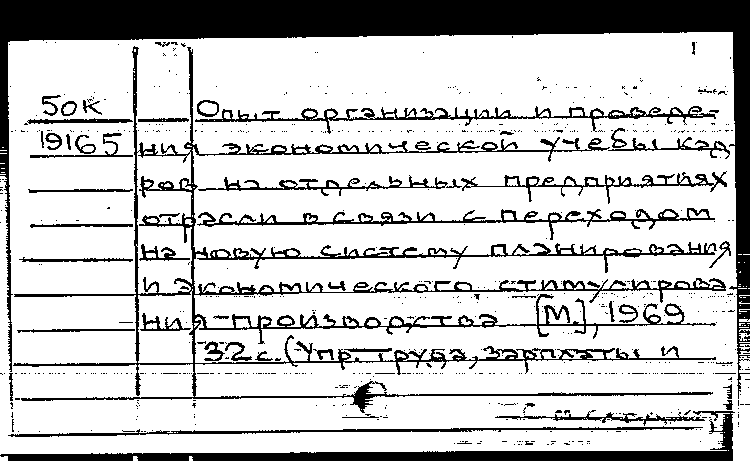 1
50К Опыт организации и проведе-
19165 ния экономической учебы кад-
ров на отдельных предприятиях
отрасли в связи с переходом
на новую систему планирования
и экономического стимулирова-
ния производства [М.], 1969
32 с. (Упр. труда, зарплаты и